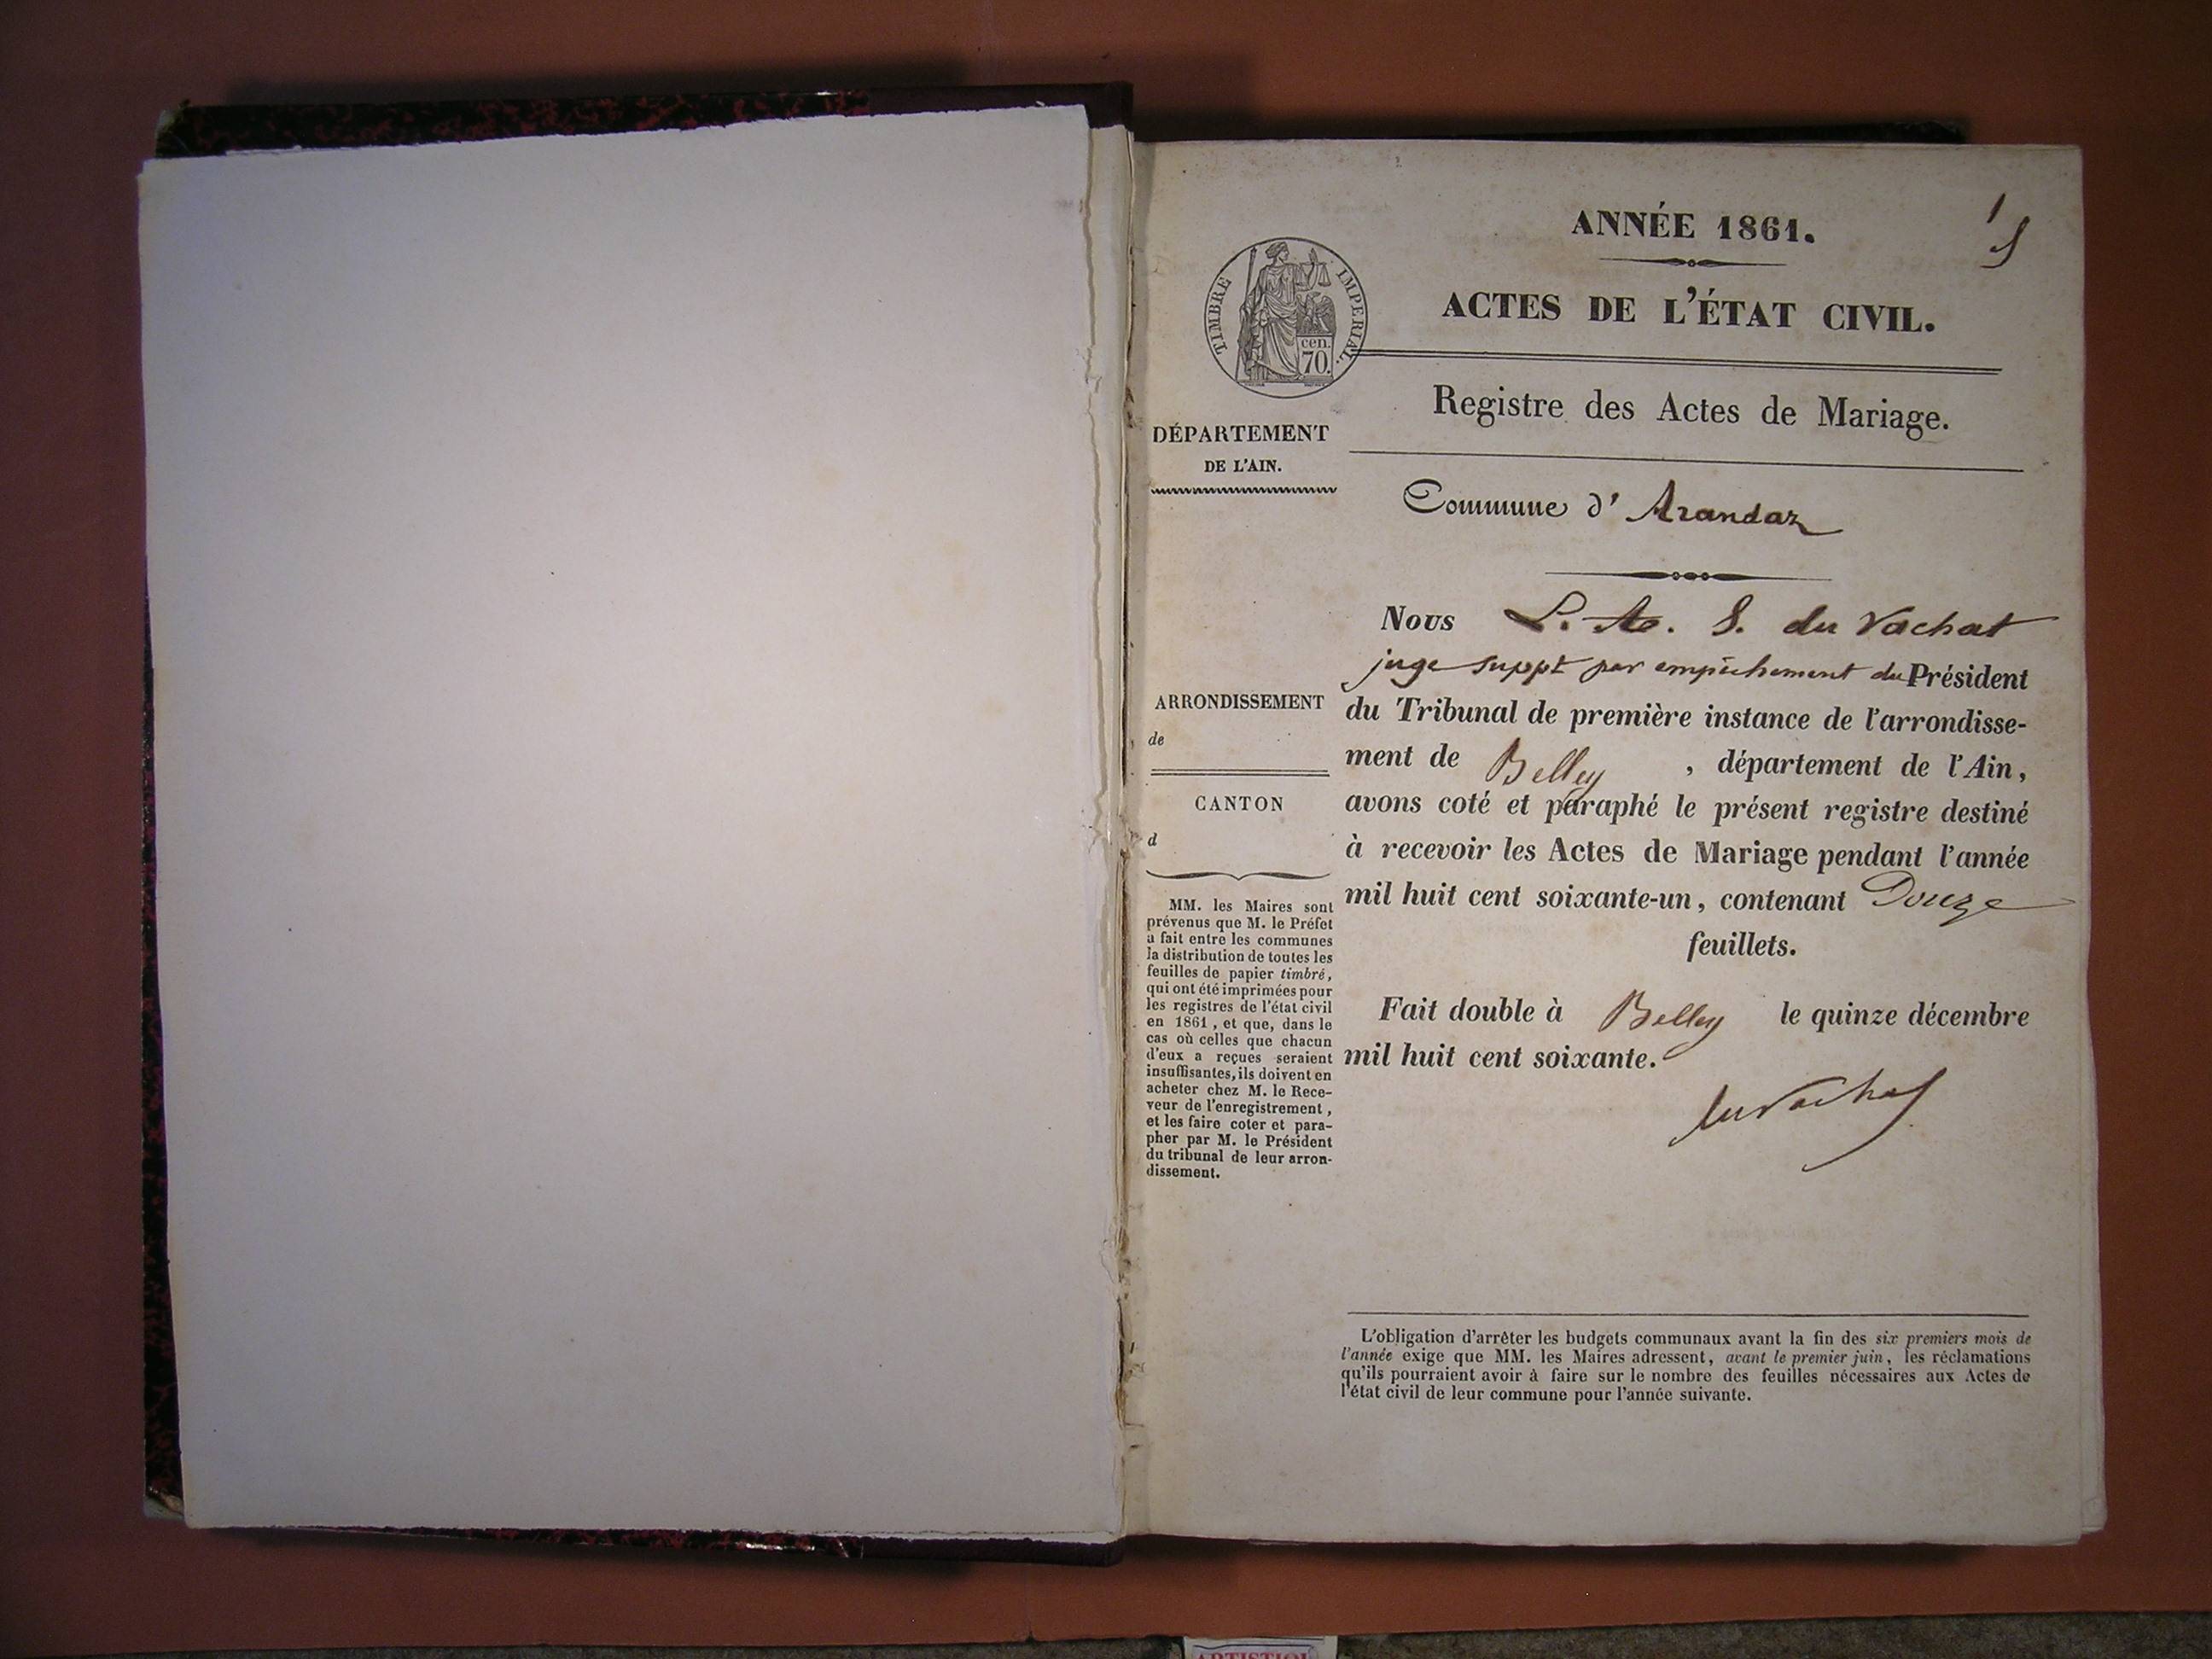 ANNÉE 1861.
1
ACTES DE L'ÉTAT CIVIL.
TIMBRE IMPERIAL.
cen.
70.
Registre des Actes de Mariage.
DÉPARTEMENT
DE L'AIN.
Commune d' Arandaz
Nous L. A. S. du Vachat
juge suppt par empêchement du Président
du Tribunal de première instance de l'arrondisse-
ment de Belley , département de l'Ain,
avons coté et paraphé le présent registre destiné
à recevoir les Actes de Mariage pendant l'année
mil huit cent soixante-un, contenant Douze
feuillets.
Fait double à Belley le quinze décembre
mil huit cent soixante.
du Vachat
ARRONDISSEMENT
de
CANTON
d
MM. les Maires sont
prévenus que M. le Préfet
a fait entre les communes
la distribution de toutes les
feuilles de papier timbré,
qui ont été imprimées pour
les registres de l'état civil
en 1861, et que, dans le
cas où celles que chacun
d'eux a reçues seraient
insuffisantes, ils doivent en
acheter chez M. le Rece-
veur de l'enregistrement,
et les faire coter et para-
pher par M. le Président
du tribunal de leur arron-
dissement.
L'obligation d'arrêter les budgets communaux avant la fin des six premiers mois de
l'année exige que MM. les Maires adressent, avant le premier juin, les réclamations
qu'ils pourraient avoir à faire sur le nombre des feuilles nécessaires aux Actes de
l'état civil de leur commune pour l'année suivante.